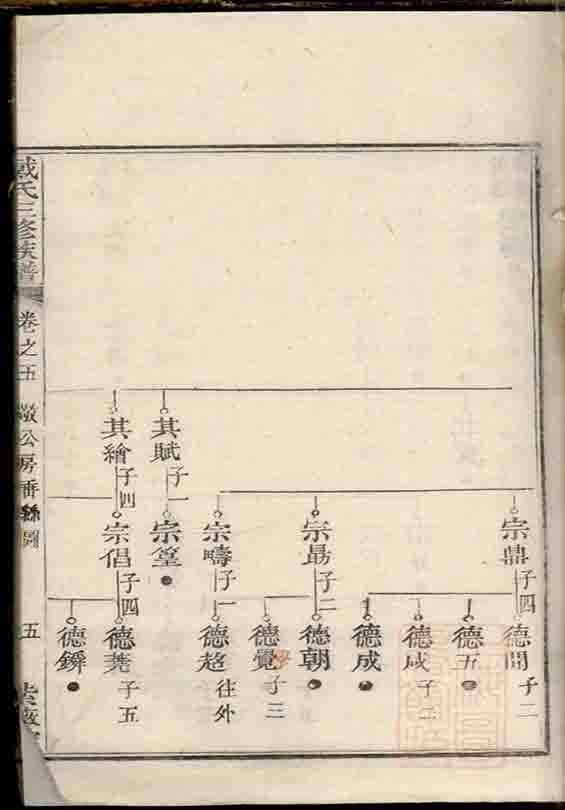 宗鼎
子四
德問
子二
德五
德成
宗勗
子二
德朝
德覺
子三
宗疇
子一
德超
往外
其賦
子一
宗堂
其繪
子四
宗倡
子四
德堯
子五
德鏻
戴氏三修族譜
卷之五
公房
五